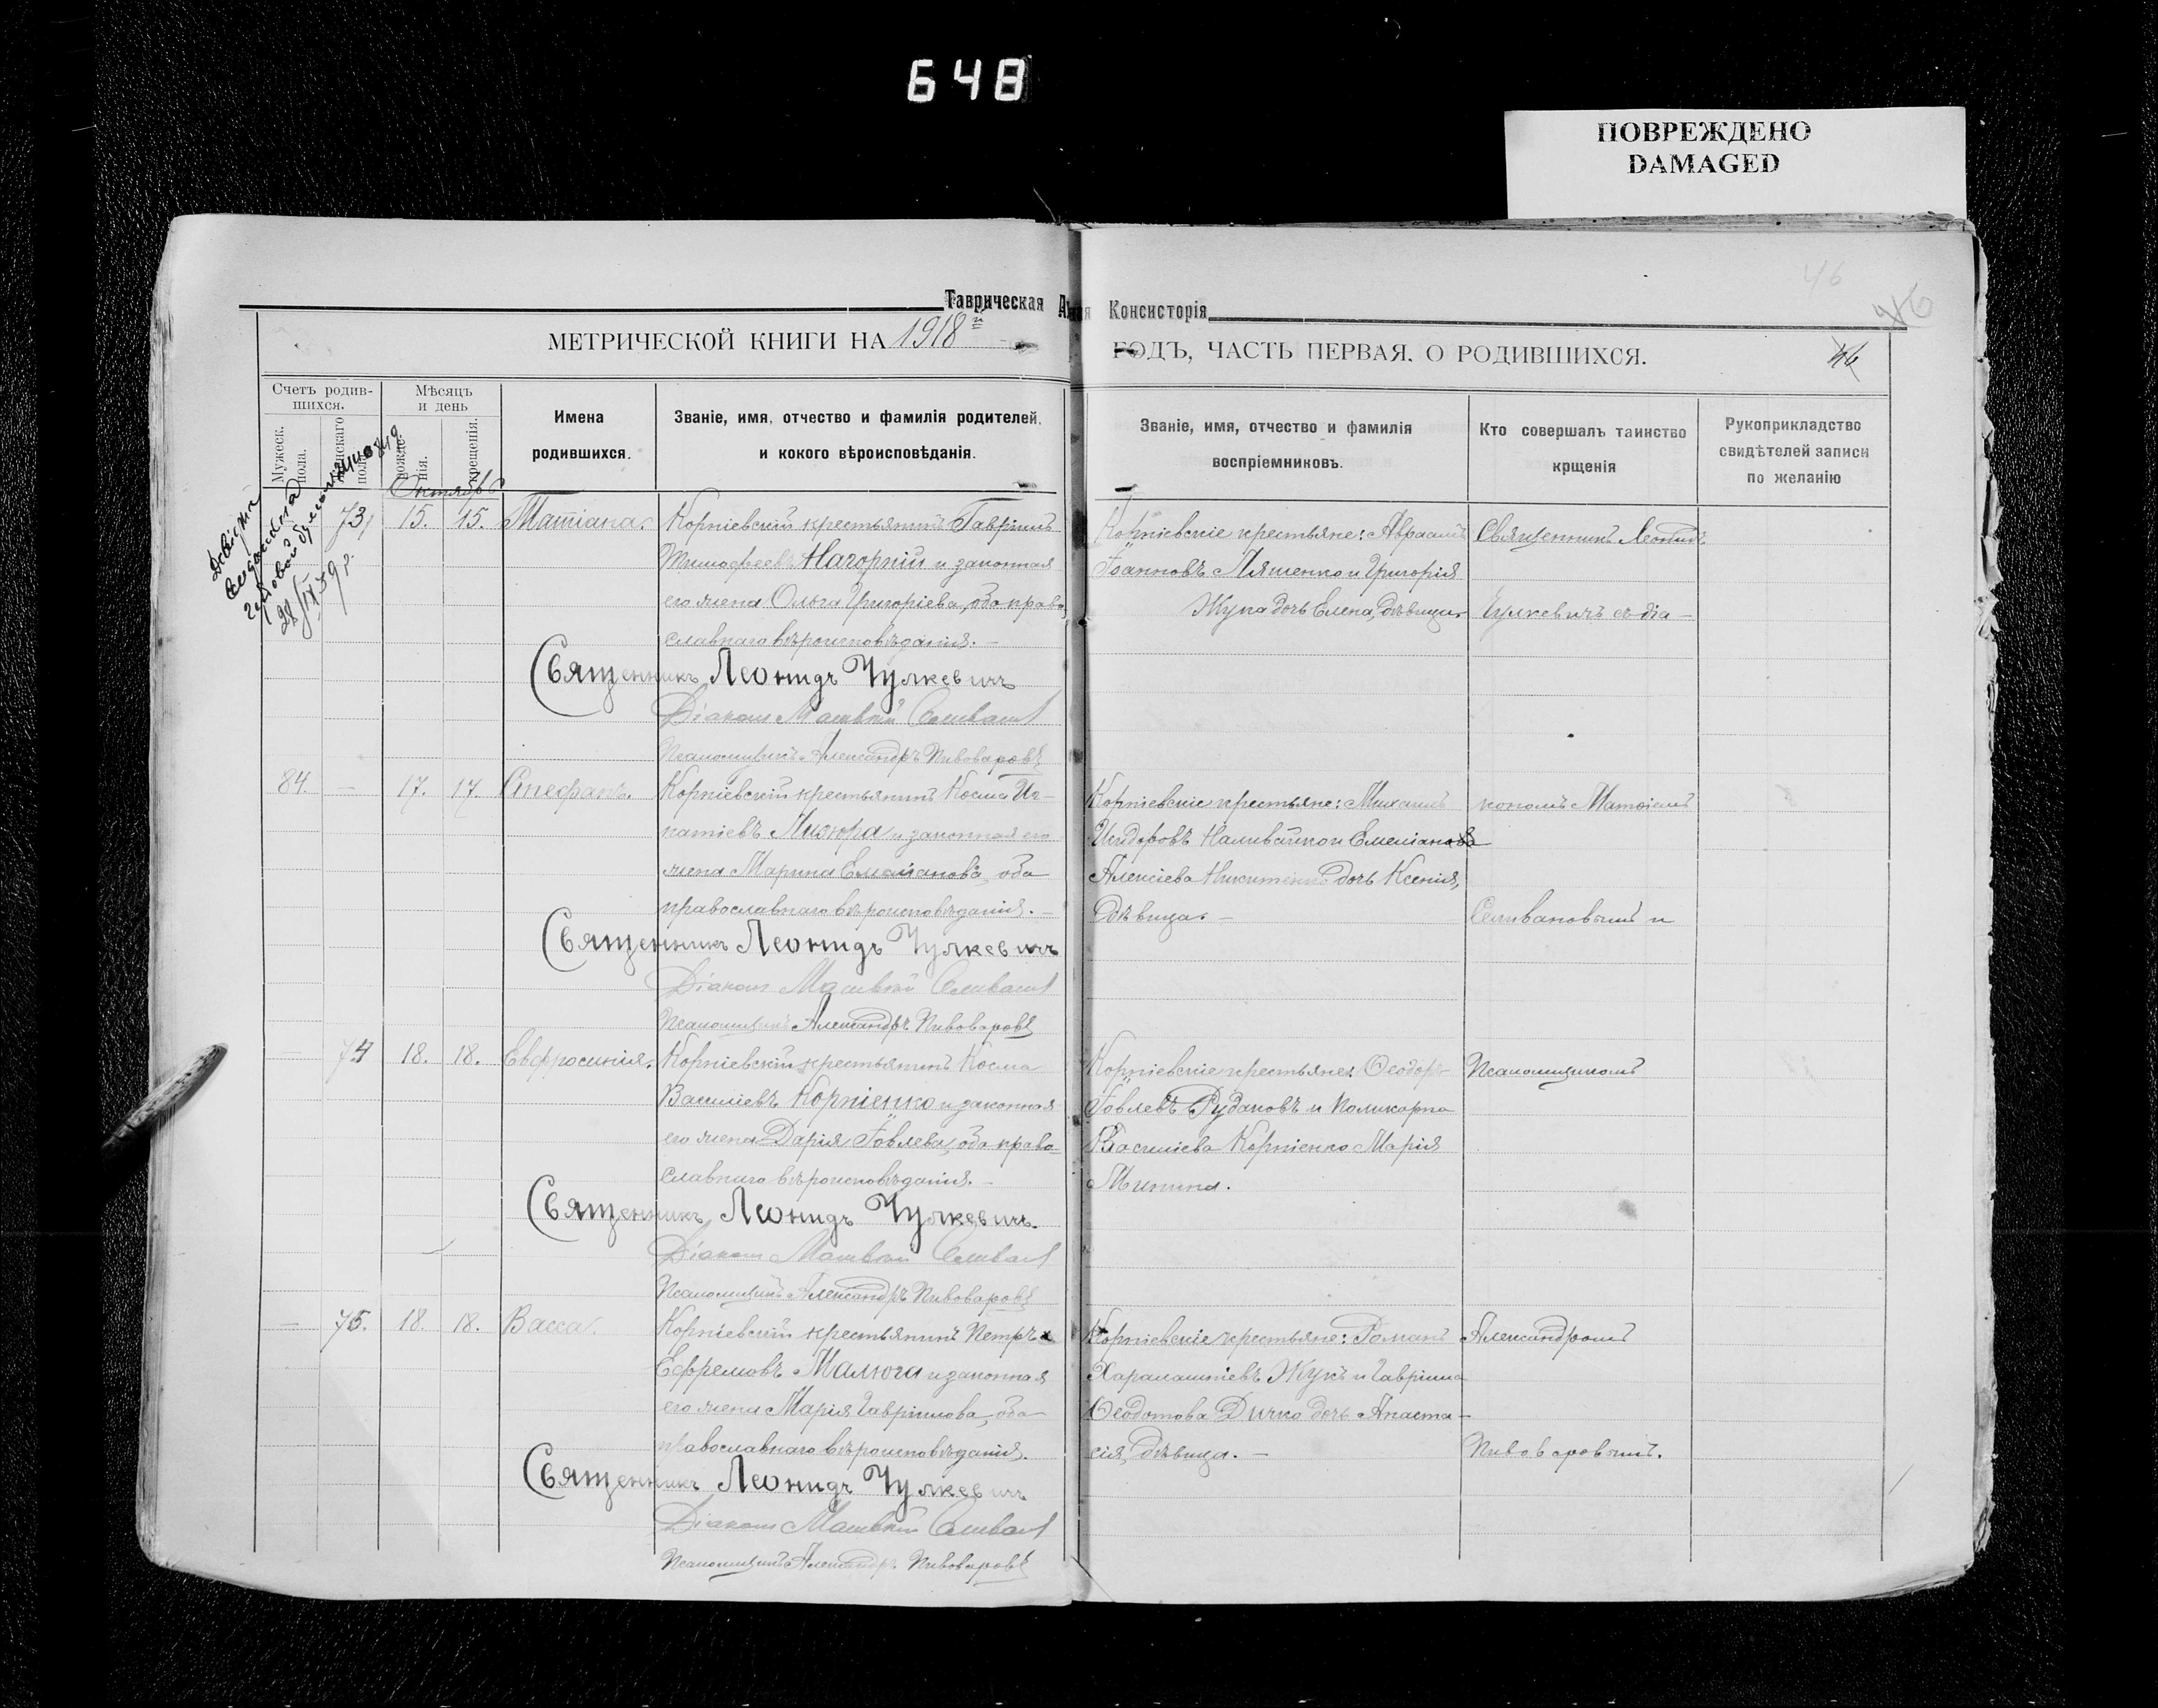 648
ПОВРЕЖДЕНО
DAMAGED
46
Таврическая
Консисторія
МЕТРИЧЕСКОЙ КНИГИ НА 1918й
ГОДЪ, ЧАСТЬ ПЕРВАЯ, О РОДИВШИХСЯ.
46
Счетъ родив-
шихся.
Мужеск.
пола.
Женскаго
пола.
Мѣсяцъ
и день
рожде-
нія.
крещенія.
Имена
родившихся.
Званіе, имя, отчество и фамилія родителей,
и кокого вѣроисповѣданія.
Званіе, имя, отчество и фамилія
воспріемниковъ.
Кто совершалъ таинство
крщенія
Рукоприкладство
свидѣтелей записи
по желанію
Октябрь
73 15. 15. Татіана. Корніевскій крестьянинъ Гавріилъ
Тимофеевъ Нагорній и законная
его жена Ольга Григоріева, оба право-
славнаго вѣроисповѣданія. —
Корніевскіе крестьяне: Авраамъ
Іоанновъ Ляшенко и Григорія
Жука дочь Елена, дѣвица.
Священникъ Леонидъ
Чулкевичъ съ діа-
Священникъ Леонидъ Чулкевичъ
Діаконъ Матвѣй Селивановъ
Псаломщикъ Александръ Пивоваровъ
84. — 17. 17. Стефанъ. Корніевскій крестьянинъ Косма Иг-
натіевъ Мизюра и законная его
жена Марина Емеліанова, оба
православнаго вѣроисповѣданія. —
Корніевскіе крестьяне: Михаилъ
Исидоровъ Наливайко и Емеліанова
Алексіева Никитенко дочь Ксенія,
дѣвица. —
кономъ Матѳіемъ
Селивановымъ и
Священникъ Леонидъ Чулкевичъ
Діаконъ Матвѣй Селивановъ
Псаломщикъ Александръ Пивоваровъ
— 74 18. 18. Евфросинія. Корніевскій крестьянинъ Косма
Василіевъ Корніенко и законная
его жена Дарія Іовлева, оба право-
славнаго вѣроисповѣданія. —
Корніевскіе крестьяне: Ѳеодоръ
Іовлевъ Рудаковъ и Поликарпа
Василіева Корніенко Марія
Минина.
Псаломщикомъ
Священникъ Леонидъ Чулкевичъ.
Діаконъ Матвѣй Селивановъ
Псаломщикъ Александръ Пивоваровъ
— 75. 18. 18. Васса. Корніевскій крестьянинъ Петръ
Ефремовъ Малюга и законная
его жена Марія Гавріилова, оба
православнаго вѣроисповѣданія.
Корніевскіе крестьяне: Романъ
Харалампіевъ Жукъ и Гавріила
Ѳеодотова Дичко дочь Анаста-
сія, дѣвица. —
Александромъ
Пивоваровымъ.
Священникъ Леонидъ Чулкевичъ
Діаконъ Матвѣй Селивановъ
Псаломщикъ Александръ Пивоваровъ